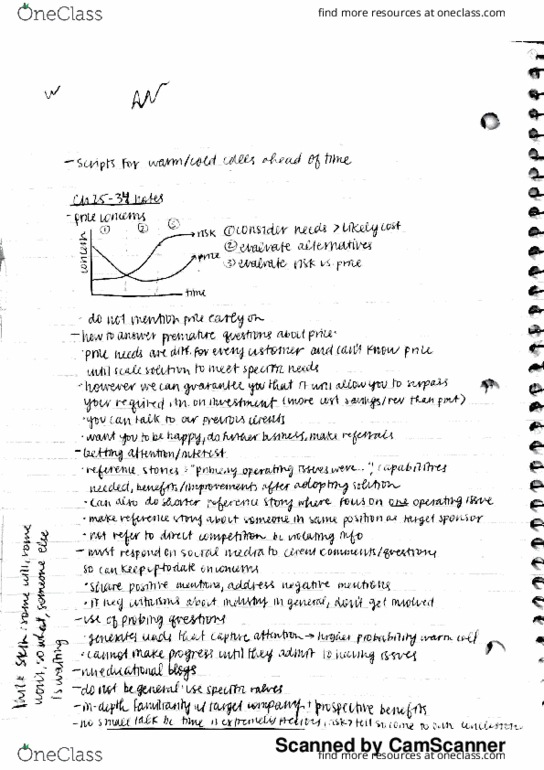 OneClass
find more resources at oneclass.com
- scripts for warm/cold calls ahead of time
Ch 25-34 Notes
- price concerns
① ② ③
concern
risk
price
time
① consider needs > likely cost
② evaluate alternatives
③ evaluate risk vs. price
· do not mention price early on
- how to answer premature questions about price·
· price needs are diff. for every customer and can't know price
until scale solution to meet specific needs
· however we can guarantee you that it will allow you to surpass
your required on investment (more cost savings/rev than
· you can talk to our previous clients
· want you to be happy, do further business, make referrals
- Getting attention/interest
· reference stories: "primary operating issues were..", capabilities
needed, benefits/improvements after adopting solution
· can also do shorter reference story where focus on one operating issue
· make reference story about someone in same position as target sponsor
· not refer to direct competition bc violating info
- must respond on social media to client comments/questions
so can keep up to date on concerns
· share positive mentions, address negative mentions
· if they criticisms about industry in general, don't get involved
- use of probing questions
· generates leads that capture attention → higher probability warm call
· cannot make progress until they admit to having issues
educational blogs
- do not be general: use specific values
- in-depth familiarity w target company + prospective benefits
- no small talk bc time is extremely precious,
some will, some
won't, so what, someone else
is waiting
Scanned by CamScanner
OneClass
find more resources at oneclass.com